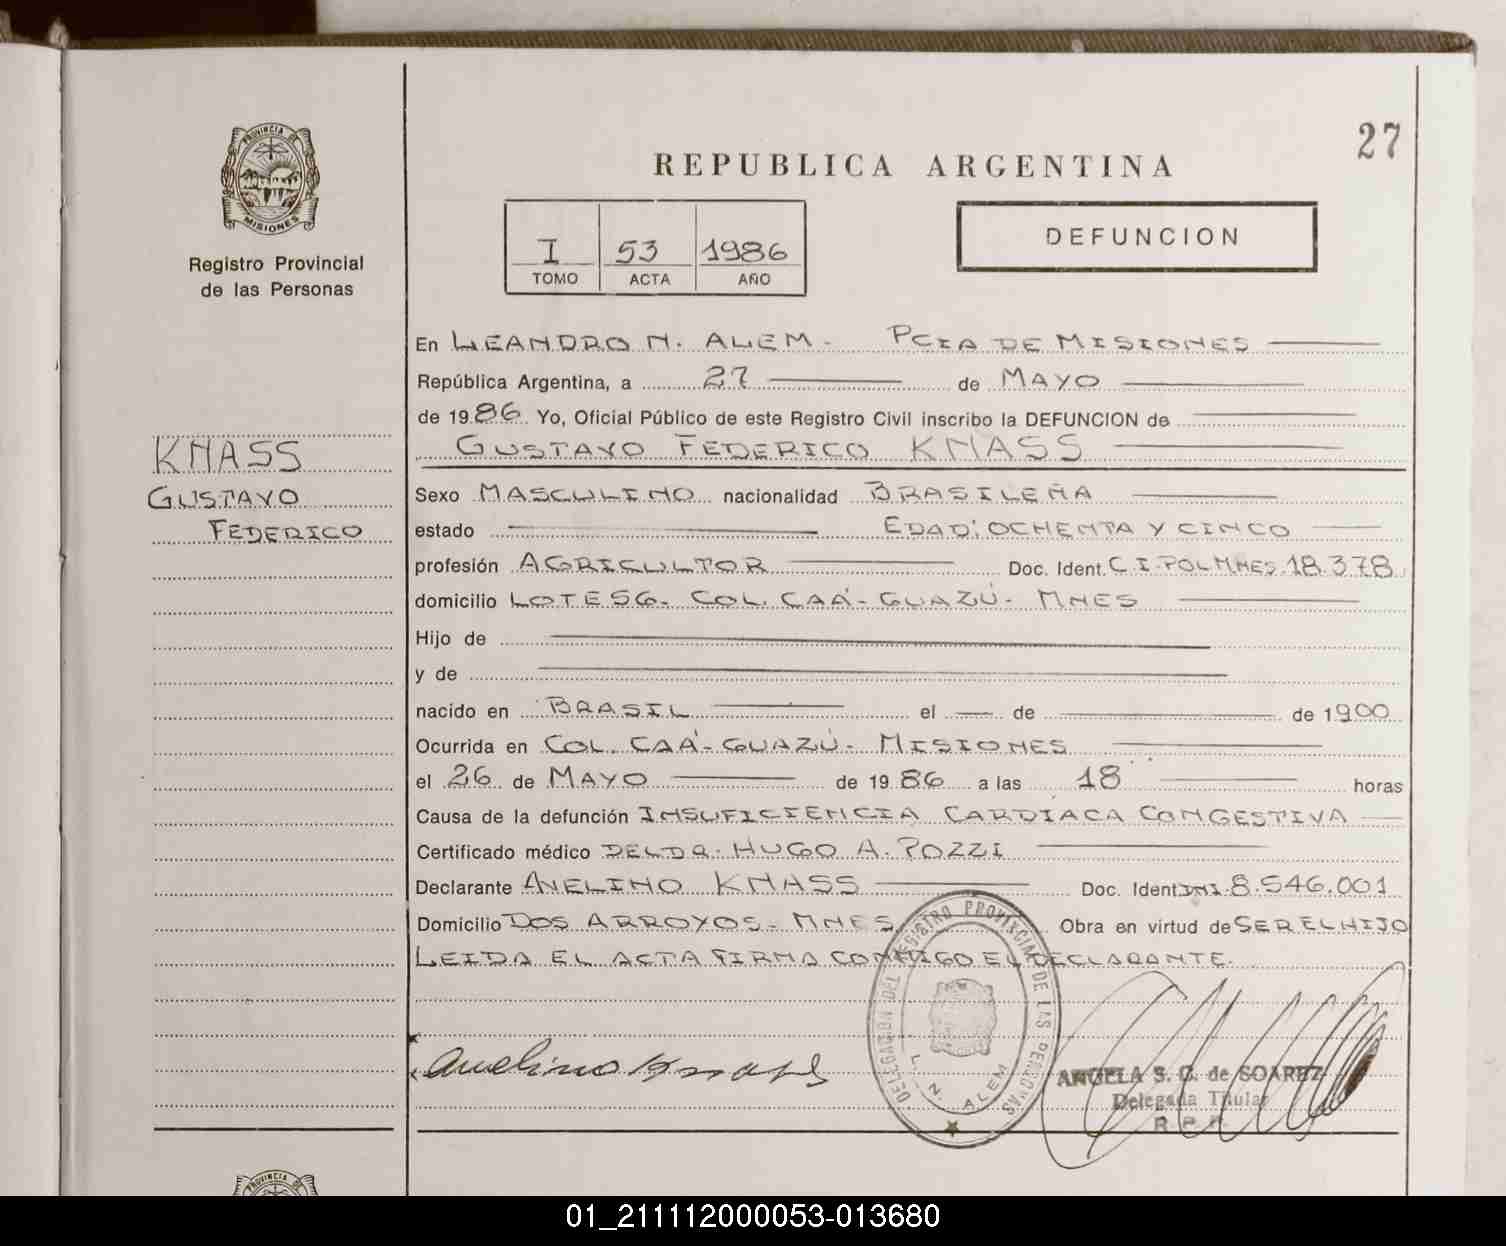 27
PROVINCIA DE
MISIONES
Registro Provincial
de las Personas
REPUBLICA ARGENTINA
I 53 1986
TOMO ACTA AÑO
DEFUNCION
KNASS
GUSTAVO
FEDERICO
En LEANDRO N. ALEM - PCIA DE MISIONES
República Argentina, a 27 de MAYO
de 1986 Yo, Oficial Público de este Registro Civil inscribo la DEFUNCION de
GUSTAVO FEDERICO KNASS
Sexo MASCULINO nacionalidad BRASILEÑA
estado EDAD: OCHENTA Y CINCO
profesión AGRICULTOR Doc. Ident. C.I. POL MNES. 18.378
domicilio LOTE 56- COL. CAÁ-GUAZÚ- MNES
Hijo de
y de
nacido en BRASIL el de de 1900
Ocurrida en COL. CAÁ-GUAZÚ- MISIONES
el 26 de MAYO de 1986 a las 18 horas
Causa de la defunción INSUFICIENCIA CARDÍACA CONGESTIVA
Certificado médico DEL DR. HUGO A. POZZI
Declarante AVELINO KNASS Doc. Ident DNI. 8.546.001
Domicilio DOS ARROYOS- MNES Obra en virtud de SER EL HIJO
LEIDA EL ACTA FIRMA CONMIGO EL DECLARANTE.
DELEGACION DEL REGISTRO PROVINCIAL DE LAS PERSONAS
L. N. ALEM
Avelino Knass
ANGELA S. G. de SOAREZ
Delegada Titular
R. P. P.
PROVINCIA DE
01_211112000053-013680